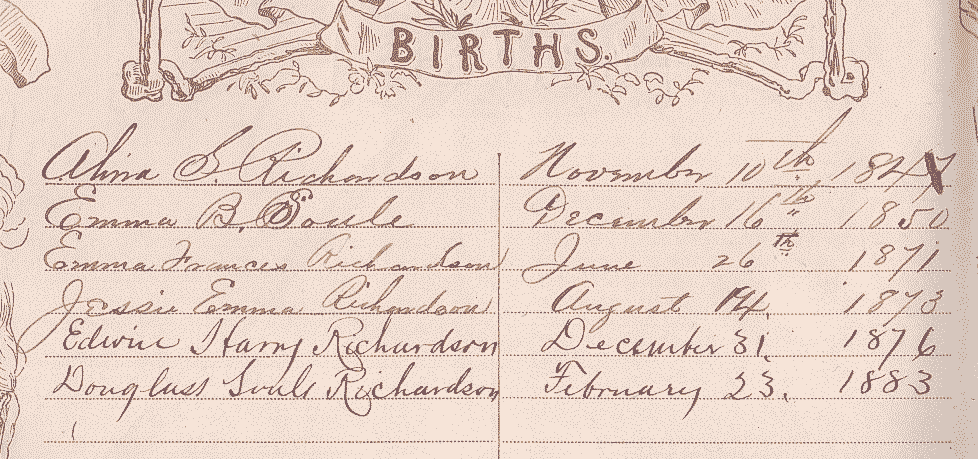 BIRTHS.
Alina S. Richardson November 10th 1847
Emma B. Soule December 16th 1850
Emma Frances Richardson June 26th 1871
Jessie Emma Richardson August 14. 1873
Edwin Harry Richardson December 31. 1876
Douglass Soule Richardson February 23. 1883